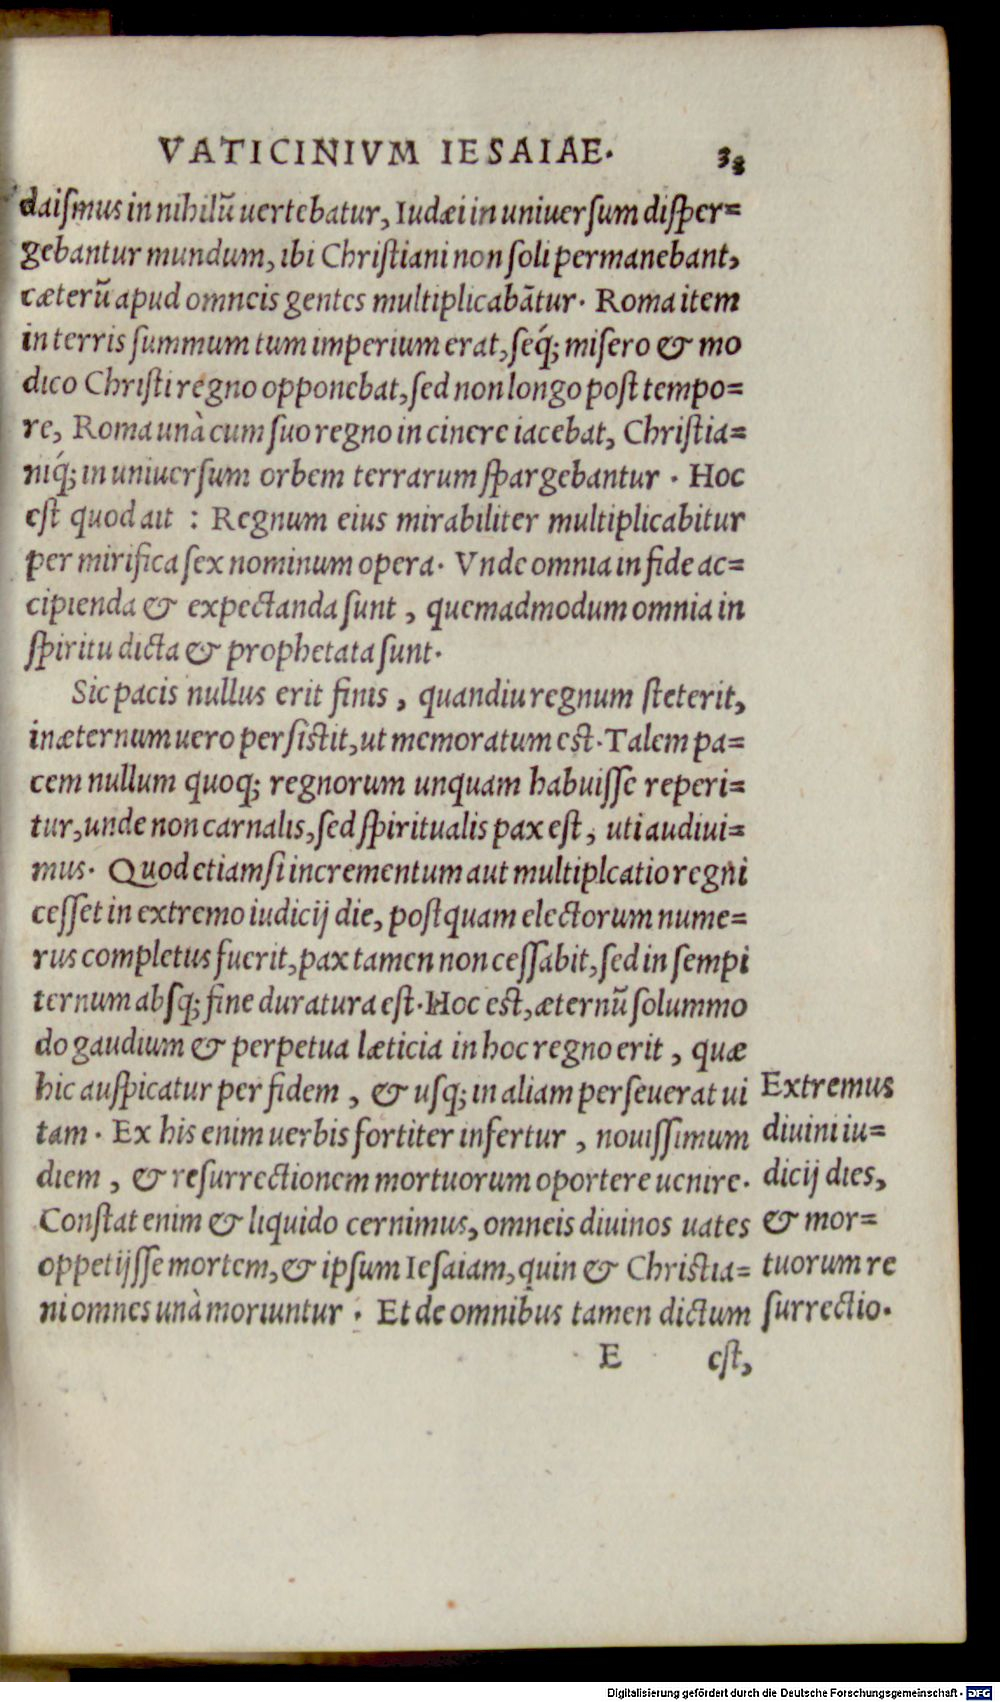 VATICINIVM IESAIAE. 38
daiſmus in nihilũ uertebatur, Iudæi in uniuerſum diſper=
gebantur mundum, ibi Chriſtiani non ſoli permanebant,
cæterũ apud omneis gentes multiplicabãtur. Roma item
in terris ſummum tum imperium erat, ſeq́; miſero & mo
dico Chriſti regno opponebat, ſed non longo poſt tempo=
re, Roma unà cum ſuo regno in cinere iacebat, Chriſtia=
niq́; in uniuerſum orbem terrarum ſpargebantur. Hoc
eſt quod ait : Regnum eius mirabiliter multiplicabitur
per mirifica ſex nominum opera. Vnde omnia in fide ac=
cipienda & expectanda ſunt, quemadmodum omnia in
ſpiritu dicta & prophetata ſunt.
Sic pacis nullus erit finis, quandiu regnum ſteterit,
in æternum uero perſiſtit, ut memoratum eſt. Talem pa=
cem nullum quoq; regnorum unquam habuiſſe reperi=
tur, unde non carnalis, ſed ſpiritualis pax eſt, uti audiui=
mus. Quod etiamſi incrementum aut multiplcatio regni
ceſſet in extremo iudicij die, poſtquam electorum nume=
rus completus fuerit, pax tamen non ceſſabit, ſed in ſempi
ternum abſq; fine duratura eſt. Hoc eſt, æternũ ſolummo
do gaudium & perpetua læticia in hoc regno erit, quæ
hic auſpicatur per fidem, & uſq; in aliam perſeuerat ui
tam. Ex his enim uerbis fortiter infertur, nouiſſimum
diem, & reſurrectionem mortuorum oportere uenire.
Conſtat enim & liquido cernimus, omneis diuinos uates
oppetijſſe mortem, & ipſum Ieſaiam, quin & Chriſtia=
ni omnes unà moriuntur. Et de omnibus tamen dictum
Extremus
diuini iu=
dicij dies,
& mor=
tuorum re
ſurrectio.
E eſt,
Digitalisierung gefördert durch die Deutsche Forschungsgemeinschaft - DFG